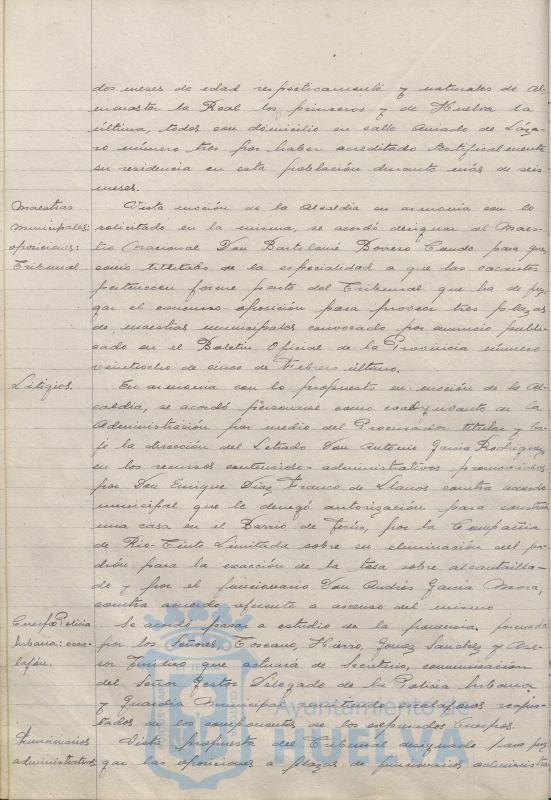 dos meses de edad respectivamente y naturales de Al-
monaster la Real los primeros y de Huelva la
última, todos con domicilio en calle Amado de Láza-
ro número tres por haber acreditado testificalmente
su residencia en esta población durante más de seis
meses.
Maestras
municipales:
oposiciones:
Tribunal
Vista moción de la Alcaldía en armonía con lo
solicitado en la misma, se acordó designar al Maes-
tro Nacional Don Bartolomé Borrero Cando para que,
como titulado de la especialidad a que las vacantes
pertenecen forme parte del Tribunal que ha de juz-
gar el concurso-oposición para proveer tres plazas
de maestras municipales convocado por anuncio publi-
cado en el Boletín Oficial de la Provincia número
veintiocho de cinco de Febrero último.
Litigios.
En armonía con lo propuesto en moción de la Al-
caldía, se acordó personarse como coadyuvante de la
Administración por medio del Procurador titular y ba-
jo la dirección del Letrado Don Antonio García Rodríguez
en los recursos contencioso-administrativos promovidos
por Don Enrique Díaz Franco de Llanos contra acuerdo
municipal que le denegó autorización para construir
una casa en el Barrio de Jesús, por la Compañía
de Rio-Tinto Limitada sobre su eliminación del pa-
drón para la exacción de la tasa sobre alcantarilla-
do y por el funcionario Don Andrés García Mora,
contra acuerdo referente a ascenso del mismo
Cuerpo Policía
Urbana: esca-
lafón.
Se acordó pasar a estudio de la ponencia formada
por los Señores, Toscano, Hierro, Gomez Sanchez y Ase-
sor Jurídico que actuará de Secretario, comunicación
del Señor Gestor Delegado de la Policía Urbana
y Guardia Municipal remitiendo escalafones
de los componentes de los expresados Cuerpos.
Funcionarios
administrativos
Vista propuesta del Tribunal designado para juz-
gar las oposiciones a plazas de funcionarios administra-
Ayuntamiento de
HUELVA